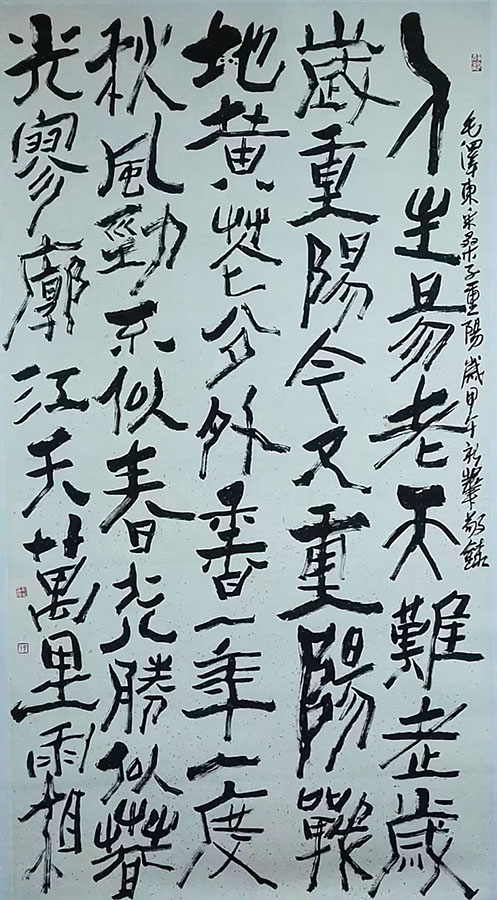 毛澤東采桑子重陽歲甲午敬錄
人生易老天難老歲
歲重陽今又重陽戰
地黄花分外香一年一度
秋風勁不似春光勝似春
光寥廓江天萬里霜